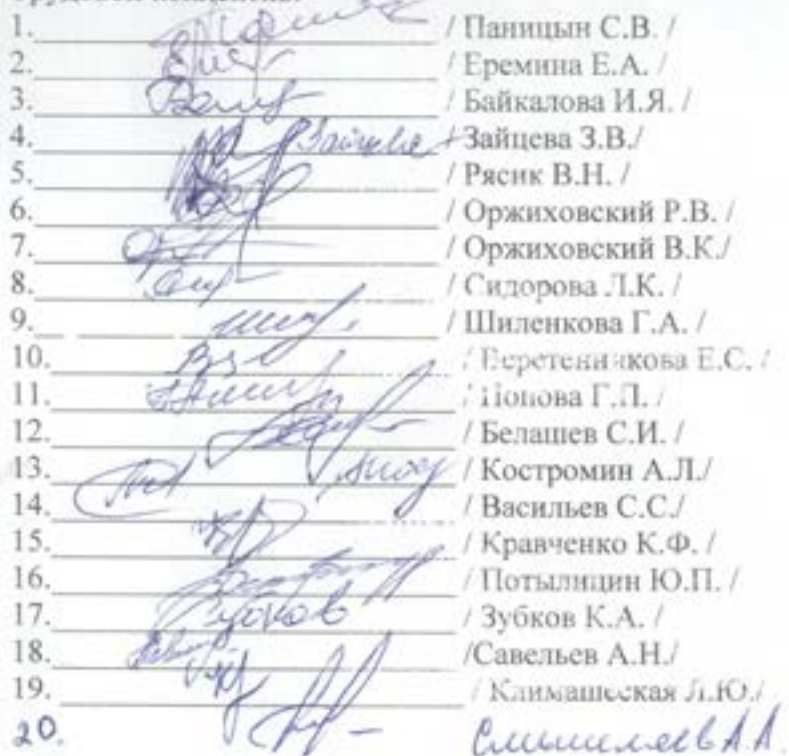 1. / Паницын С.В. /
2. / Еремина Е.А. /
3. / Байкалова И.Я. /
4. Зайцева / Зайцева З.В./
5. / Рясик В.Н. /
6. / Оржиховский Р.В. /
7. / Оржиховский В.К./
8. / Сидорова Л.К. /
9. / Шиленкова Г.А. /
10. / Веретенникова Е.С. /
11. / Попова Г.П. /
12. / Белашев С.И. /
13. / Костромин А.Л./
14. / Васильев С.С./
15. / Кравченко К.Ф. /
16. / Потылицин Ю.П. /
17. Зубков / Зубков К.А. /
18. /Савельев А.Н./
19. / Климашевская Л.Ю./
20. А.А.